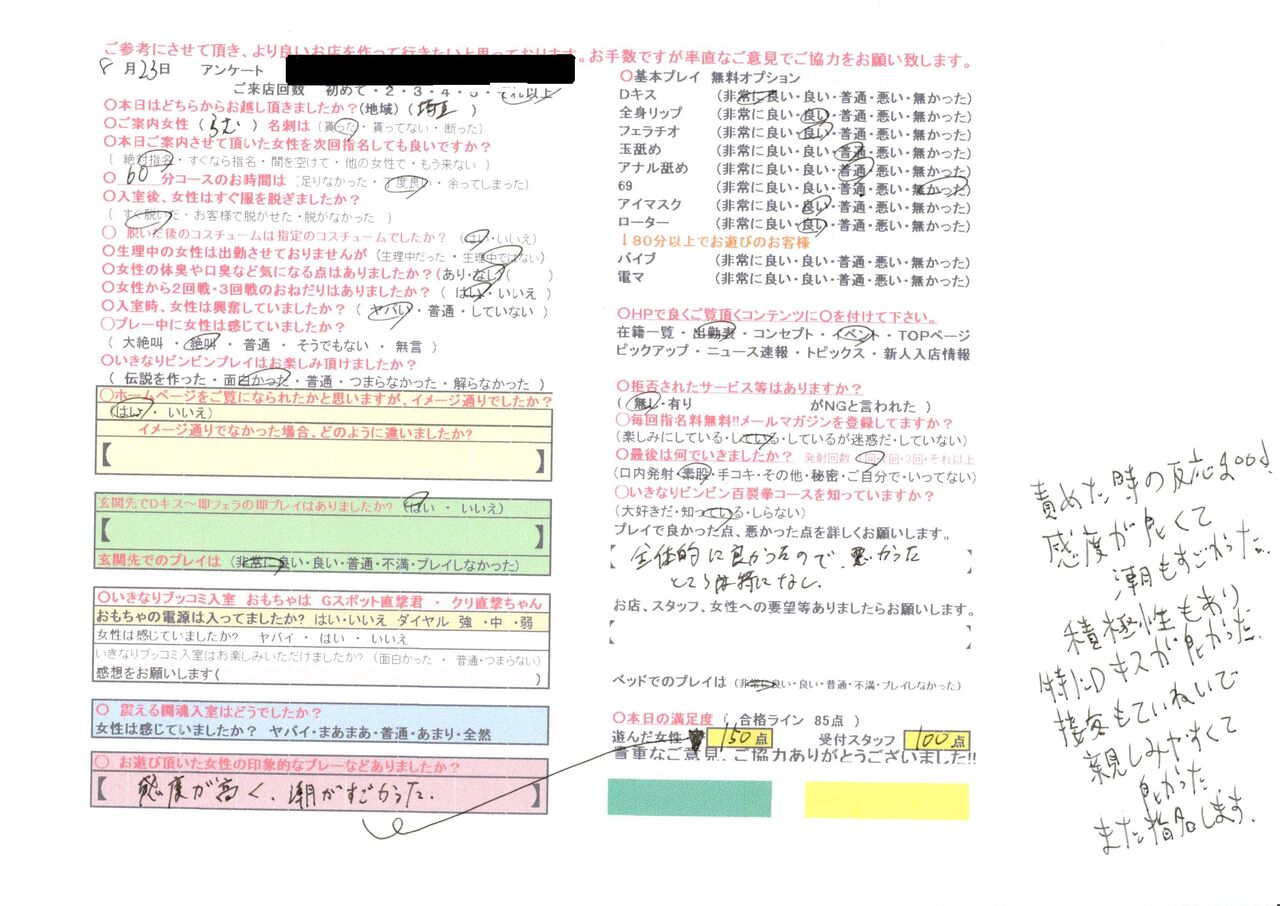 ご参考にさせて頂き、より良いお店を作って行きたいと思っております。お手数ですが率直なご意見でご協力をお願い致します。
8月23日 アンケート
ご来店回数 初めて・2・3・4・5・それ以上
〇本日はどちらからお越し頂きましたか?(地域)( 埼玉 )
〇ご案内女性 ( らむ ) 名刺は (貰った・貰ってない・断った)
〇本日ご案内させて頂いた女性を次回指名しても良いですか?
( 絶対指名・すぐなら指名・間を空けて・他の女性で・もう来ない )
〇 60 分コースのお時間は (足りなかった・丁度良い・余ってしまった)
〇入室後、女性はすぐ服を脱ぎましたか?
( すぐ脱いだ・お客様で脱がせた・脱がなかった )
〇 脱いだ後のコスチュームは指定のコスチュームでしたか? (はい・いいえ)
〇生理中の女性は出勤させておりませんが (生理中だった・生理中ではない)
〇女性の体臭や口臭など気になる点はありましたか?(あり・なし)( )
〇女性から2回戦・3回戦のおねだりはありましたか? ( はい・いいえ )
〇入室時、女性は興奮していましたか? ( ヤバい・普通・していない )
〇プレー中に女性は感じていましたか?
( 大絶叫・絶叫・普通・そうでもない・無言 )
〇いきなりビンビンプレイはお楽しみ頂けましたか?
( 伝説を作った・面白かった・普通・つまらなかった・解らなかった )
〇ホームページをご覧になられたかと思いますが、イメージ通りでしたか?
(はい・いいえ)
イメージ通りでなかった場合、どのように違いましたか?
【 】
玄関先でDキス〜即フェラの即プレイはありましたか? (はい ・ いいえ)
【 】
玄関先でのプレイは (非常に良い・良い・普通・不満・プレイしなかった)
〇いきなりブッコミ入室 おもちゃは Gスポット直撃君 ・ クリ直撃ちゃん
おもちゃの電源は入ってましたか? はい・いいえ ダイヤル 強 ・中 ・弱
女性は感じていましたか? ヤバイ ・ はい ・ いいえ
いきなりブッコミ入室はお楽しみいただけましたか? (面白かった ・ 普通・つまらない)
感想をお願いします( )
〇 震える闘魂入室はどうでしたか?
女性は感じていましたか? ヤバイ・まあまあ・普通・あまり・全然
〇 お遊び頂いた女性の印象的なプレーなどありましたか?
【 感度が高く、潮がすごかった. 】
〇基本プレイ 無料オプション
Dキス (非常に良い・良い・普通・悪い・無かった)
全身リップ (非常に良い・良い・普通・悪い・無かった)
フェラチオ (非常に良い・良い・普通・悪い・無かった)
玉舐め (非常に良い・良い・普通・悪い・無かった)
アナル舐め (非常に良い・良い・普通・悪い・無かった)
69 (非常に良い・良い・普通・悪い・無かった)
アイマスク (非常に良い・良い・普通・悪い・無かった)
ローター (非常に良い・良い・普通・悪い・無かった)
↓80分以上でお遊びのお客様
バイブ (非常に良い・良い・普通・悪い・無かった)
電マ (非常に良い・良い・普通・悪い・無かった)
〇HPで良くご覧頂くコンテンツに〇を付けて下さい。
在籍一覧・出勤表・コンセプト・イベント・TOPページ
ピックアップ・ニュース速報・トピックス・新人入店情報
〇拒否されたサービス等はありますか?
( 無し・有り がNGと言われた )
〇毎回指名料無料!!メールマガジンを登録してますか?
(楽しみにしている・している・しているが迷惑だ・していない)
〇最後は何でいきましたか? 発射回数 1回・2回・3回・それ以上
(口内発射・素股・手コキ・その他・秘密・ご自分で・いってない)
〇いきなりビンビン百裂拳コースを知っていますか?
(大好きだ・知っている・しらない)
プレイで良かった点、悪かった点を詳しくお願いします。
全体的に良かったので 悪かった
ところは特になし.
お店、スタッフ、女性への要望等ありましたらお願いします。
ベッドでのプレイは (非常に良い・良い・普通・不満・プレイしなかった)
〇本日の満足度 ( 合格ライン 85点 )
遊んだ女性 150 点 受付スタッフ 100 点
貴重なご意見、ご協力ありがとうございました!!
責めた時の反応もgood.
感度が良くて
潮もすごかった.
積極性もあり
特にDキスが良かった.
接客もていねいで
親しみやすくて
良かった
また指名します.